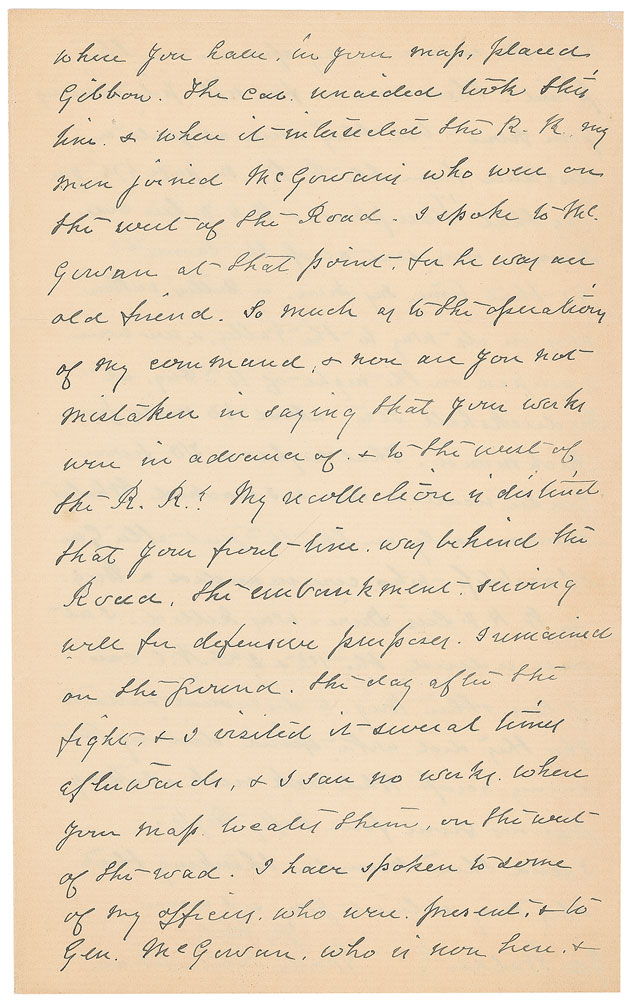 where you have, in your map, placed
Gibbon. The cav. unaided took this
line. & when it intersected the R. R. my
men joined McGowan's who were on
the west of the Road. I spoke to Mc.
Gowan at that point. for he was an
old friend. So much as to the operations
of my command, & now are you not
mistaken in saying that your works
were in advance of. & to the west of
the R. R.? My recollection is distinct
that your front line. was behind the
Road, the embankment serving
well for defensive purposes. I remained
on the ground. the day after the
fight, & I visited it several times
afterwards, & I saw no works. where
your map. locates them, on the west
of the road. I have spoken to some
of my officers. who were. present, & to
Gen. McGowan. who is now here. &